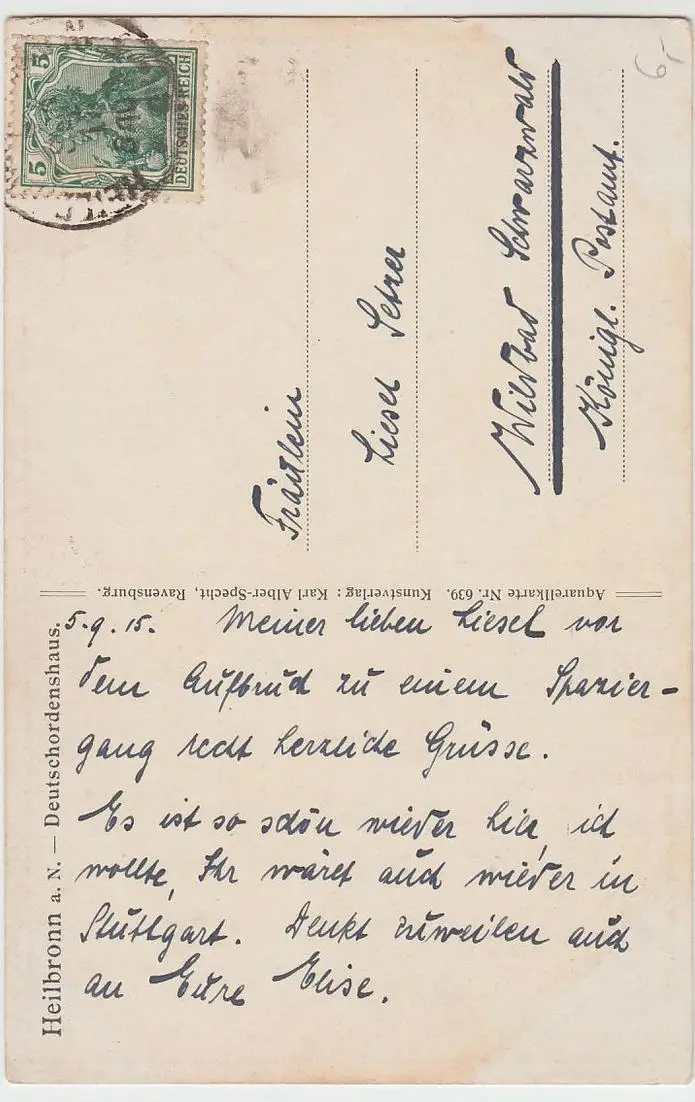 5
5
DEUTSCHES REICH
6,-
Fräulein
Liesel Setzer
Wildbad Schwarzwald
Königl. Postamt.
Aquarellkarte Nr. 639. Kunstverlag: Karl Alber-Specht, Ravensburg.
Heilbronn a. N. — Deutschordenshaus.
5.9.15. Meiner lieben Liesel vor
dem Aufbruch zu einem Spazier-
gang recht herzliche Grüsse.
Es ist so schön wieder hier, ich
wollte, Ihr wäret auch wieder in
Stuttgart. Denkt zuweilen auch
an Eure Elise.